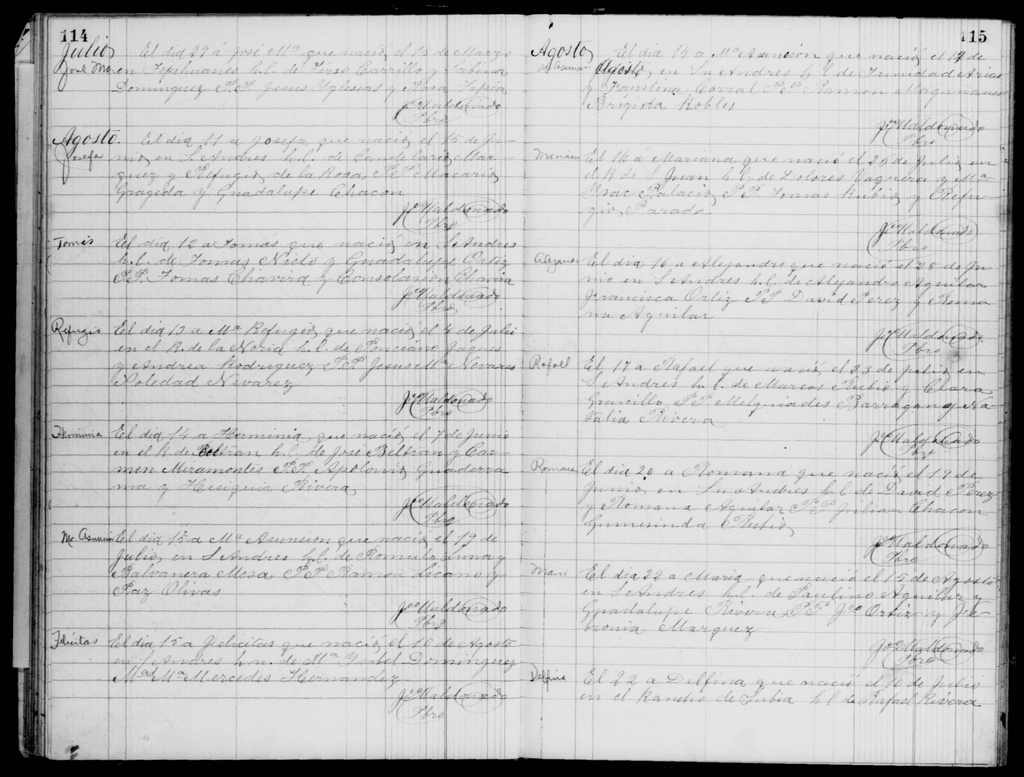 114
Julio
José Ma
El dia 29 á José Ma. que nació el 15 de Marzo
en Tepehuanes h.l. de Tires Carrillo y Sabina
Dominguez P.P. Jesus Iglesias y Sara Tapia
Jo Maldonado
Pbro
Agosto.
Josefa
El dia 11 a Josefa que nació el 15 de Ju-
nio en S. Andres h.l. de Candelario Mar-
quez y Refugio de la Rosa, P.P. Macario
Grageda y Guadalupe Chacon
Jo Maldonado
Pbro
Tomás
El dia 12 a Tomás que nació en S. Andres
h.l. de Tomas Nieto y Guadalupe Ortiz
P.P. Tomas Chavira y Consolacion
Jo Maldonado
Pbro
Refugio
El dia 13 a Ma. Refugio que nació el 4 de Julio
en el R. de la Noria h.l. de Ponciano
y Andrea Rodriguez P.P. Jesus Ma. Nevares
Soledad Nevarez
Jo Maldonado
Pbro
Herminia
El dia 14 a Herminia que nació el 7 de Junio
en el R. de Beltran h.l. de José Beltran y Car-
men Miramontes P.P. Apolonio Guaderra-
ma y Hesiquia Rivera
Jo Maldonado
Pbro
Ma. Asuncion
El dia 15 a Ma. Asuncion que nació el 19 de
Julio en S. Andres h.l. de Romulo Luna y
Balvanera Mesa P.P. Ramon Licano y
Paz Olivas
Jo Maldonado
Pbro
Felicitas
El dia 15 a Felicitas que nació el 10 de Agosto
en S. Andres h.n. de Ma. Ysabel Dominguez
Ma. Mercedes Hernandez
Jo Maldonado
Pbro
115
Agosto
Ma. Asuncion
El dia 15 a Ma. Asuncion que nació el 14 de
Agosto en Sn Andres h.l. de Trinidad Arias
y Franlina Corral P.P. Ramon Maquinanes
Brigida Robles
Jo Maldonado
Pbro
Mariana
El 16 a Mariana que nació el 26 de Julio en
el R. de S. Juan h.l. de Dolores Vaquera y Ma.
Isac Palacio, P.P. Tomas Rubio y Refu-
gio Parado
Jo Maldonado
Pbro
Alejandro
El dia 16 a Alejandro que nació el 28 de Ju-
nio en S. Andres h.l. de Alejandro Aguilar
Francisca Ortiz P.P. David Perez y Roma-
na Aguilar
Jo Maldonado
Pbro
Rafael
El 17 a Rafael que nació el 23 de Julio en
S. Andres h.l. de Marcos Rubio y Clara
P.P. Melquiades Barragan y Na-
talia Rivera
Jo Maldonado
Pbro
Romana
El dia 20 a Romana que nació el 19 de
Junio en Sn Andres h.l. de David Perez
y Romana Aguilar P.P. Julian Chacon
Gumesinda Rubio
Jo Maldonado
Pbro
Maria
El dia 22 a Maria que nació el 15 de Agosto
en S. Andres h.l. de Paulino Aguilar y
Guadalupe Rivera P.P. Jo Ortiz y Je-
ronia Marquez
Jo Maldonado
Pbro
Delfina
El 22 a Delfina que nació el 16 de Julio
en el Rancho de Tubia h.l. de Rafael Rivera